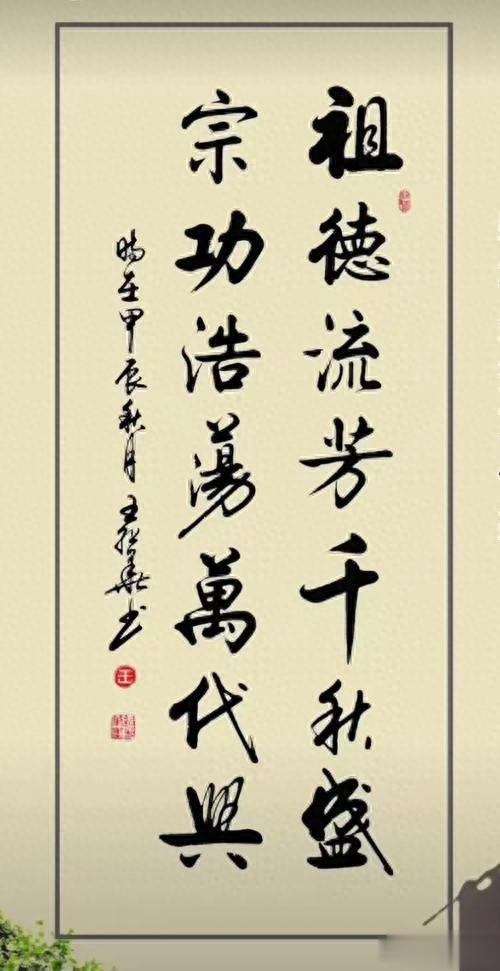 祖德流芳千秋盛
宗功浩蕩萬代興
時在甲辰秋月王 書